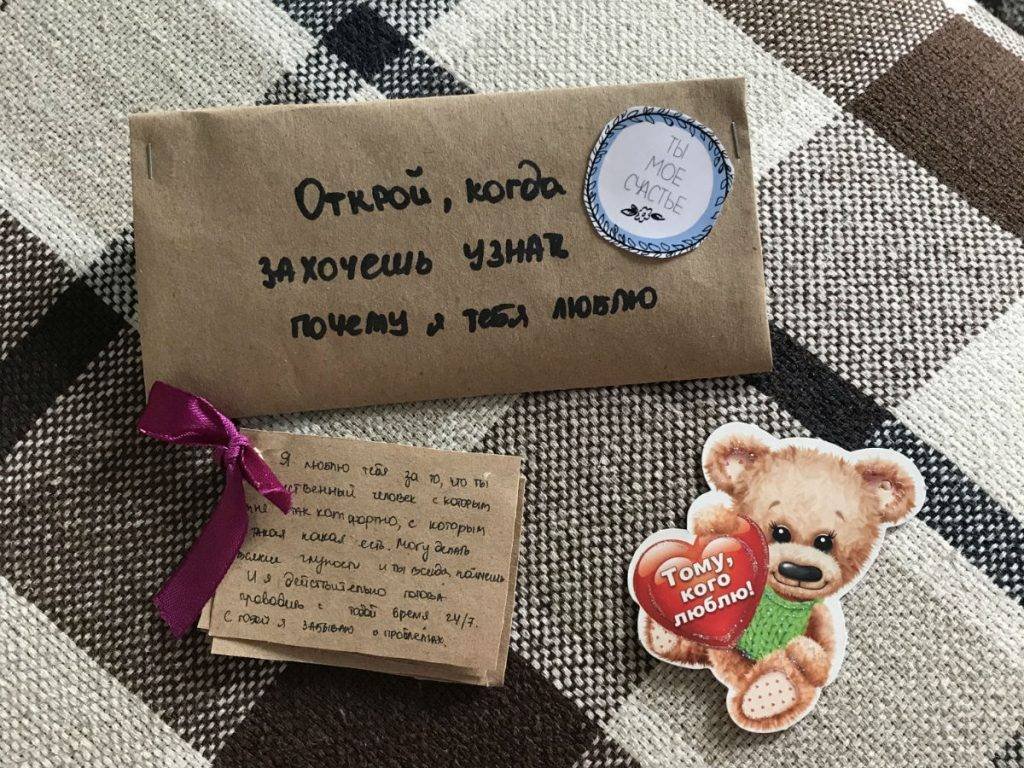 Открой, когда
захочешь узнать
почему я тебя люблю
ТЫ
МОЕ
СЧАСТЬЕ
Я люблю тебя за то, что ты
ственный человек с которым
мне так комфортно, с которым
такая какая есть. Могу делать
всякие глупости и ты всегда поймешь
И я действительно готова
проводить с тобой время 24/7.
С тобой я забываю о проблемах.
Тому,
кого
люблю!